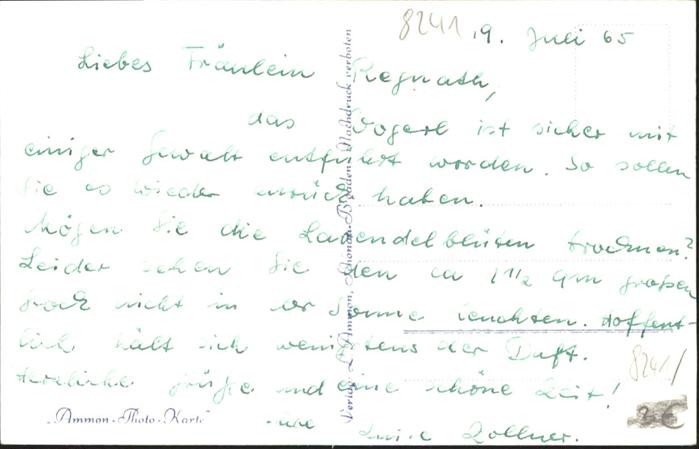 8241
19. Juli 65
Liebes Fräulein Regnath,
das Vogerl ist sicher mit
einiger Gewalt entführt worden. So sollen
Sie es wieder zurück haben.
Mögen Sie die Lavendelblüten trocknen?
Leider sehen Sie den ca 1 1/2 qm großen
nicht in der Sonne leuchten. Hoffent-
lich hält sich wenigstens der Duft.
Herzliche Grüße und eine schöne Zeit!
Ihre Luise Zollner.
8241/
2€
"Ammon-Photo-Karte"
Verlag L. Ammon, Schönau-B'gaden. Nachdruck verboten